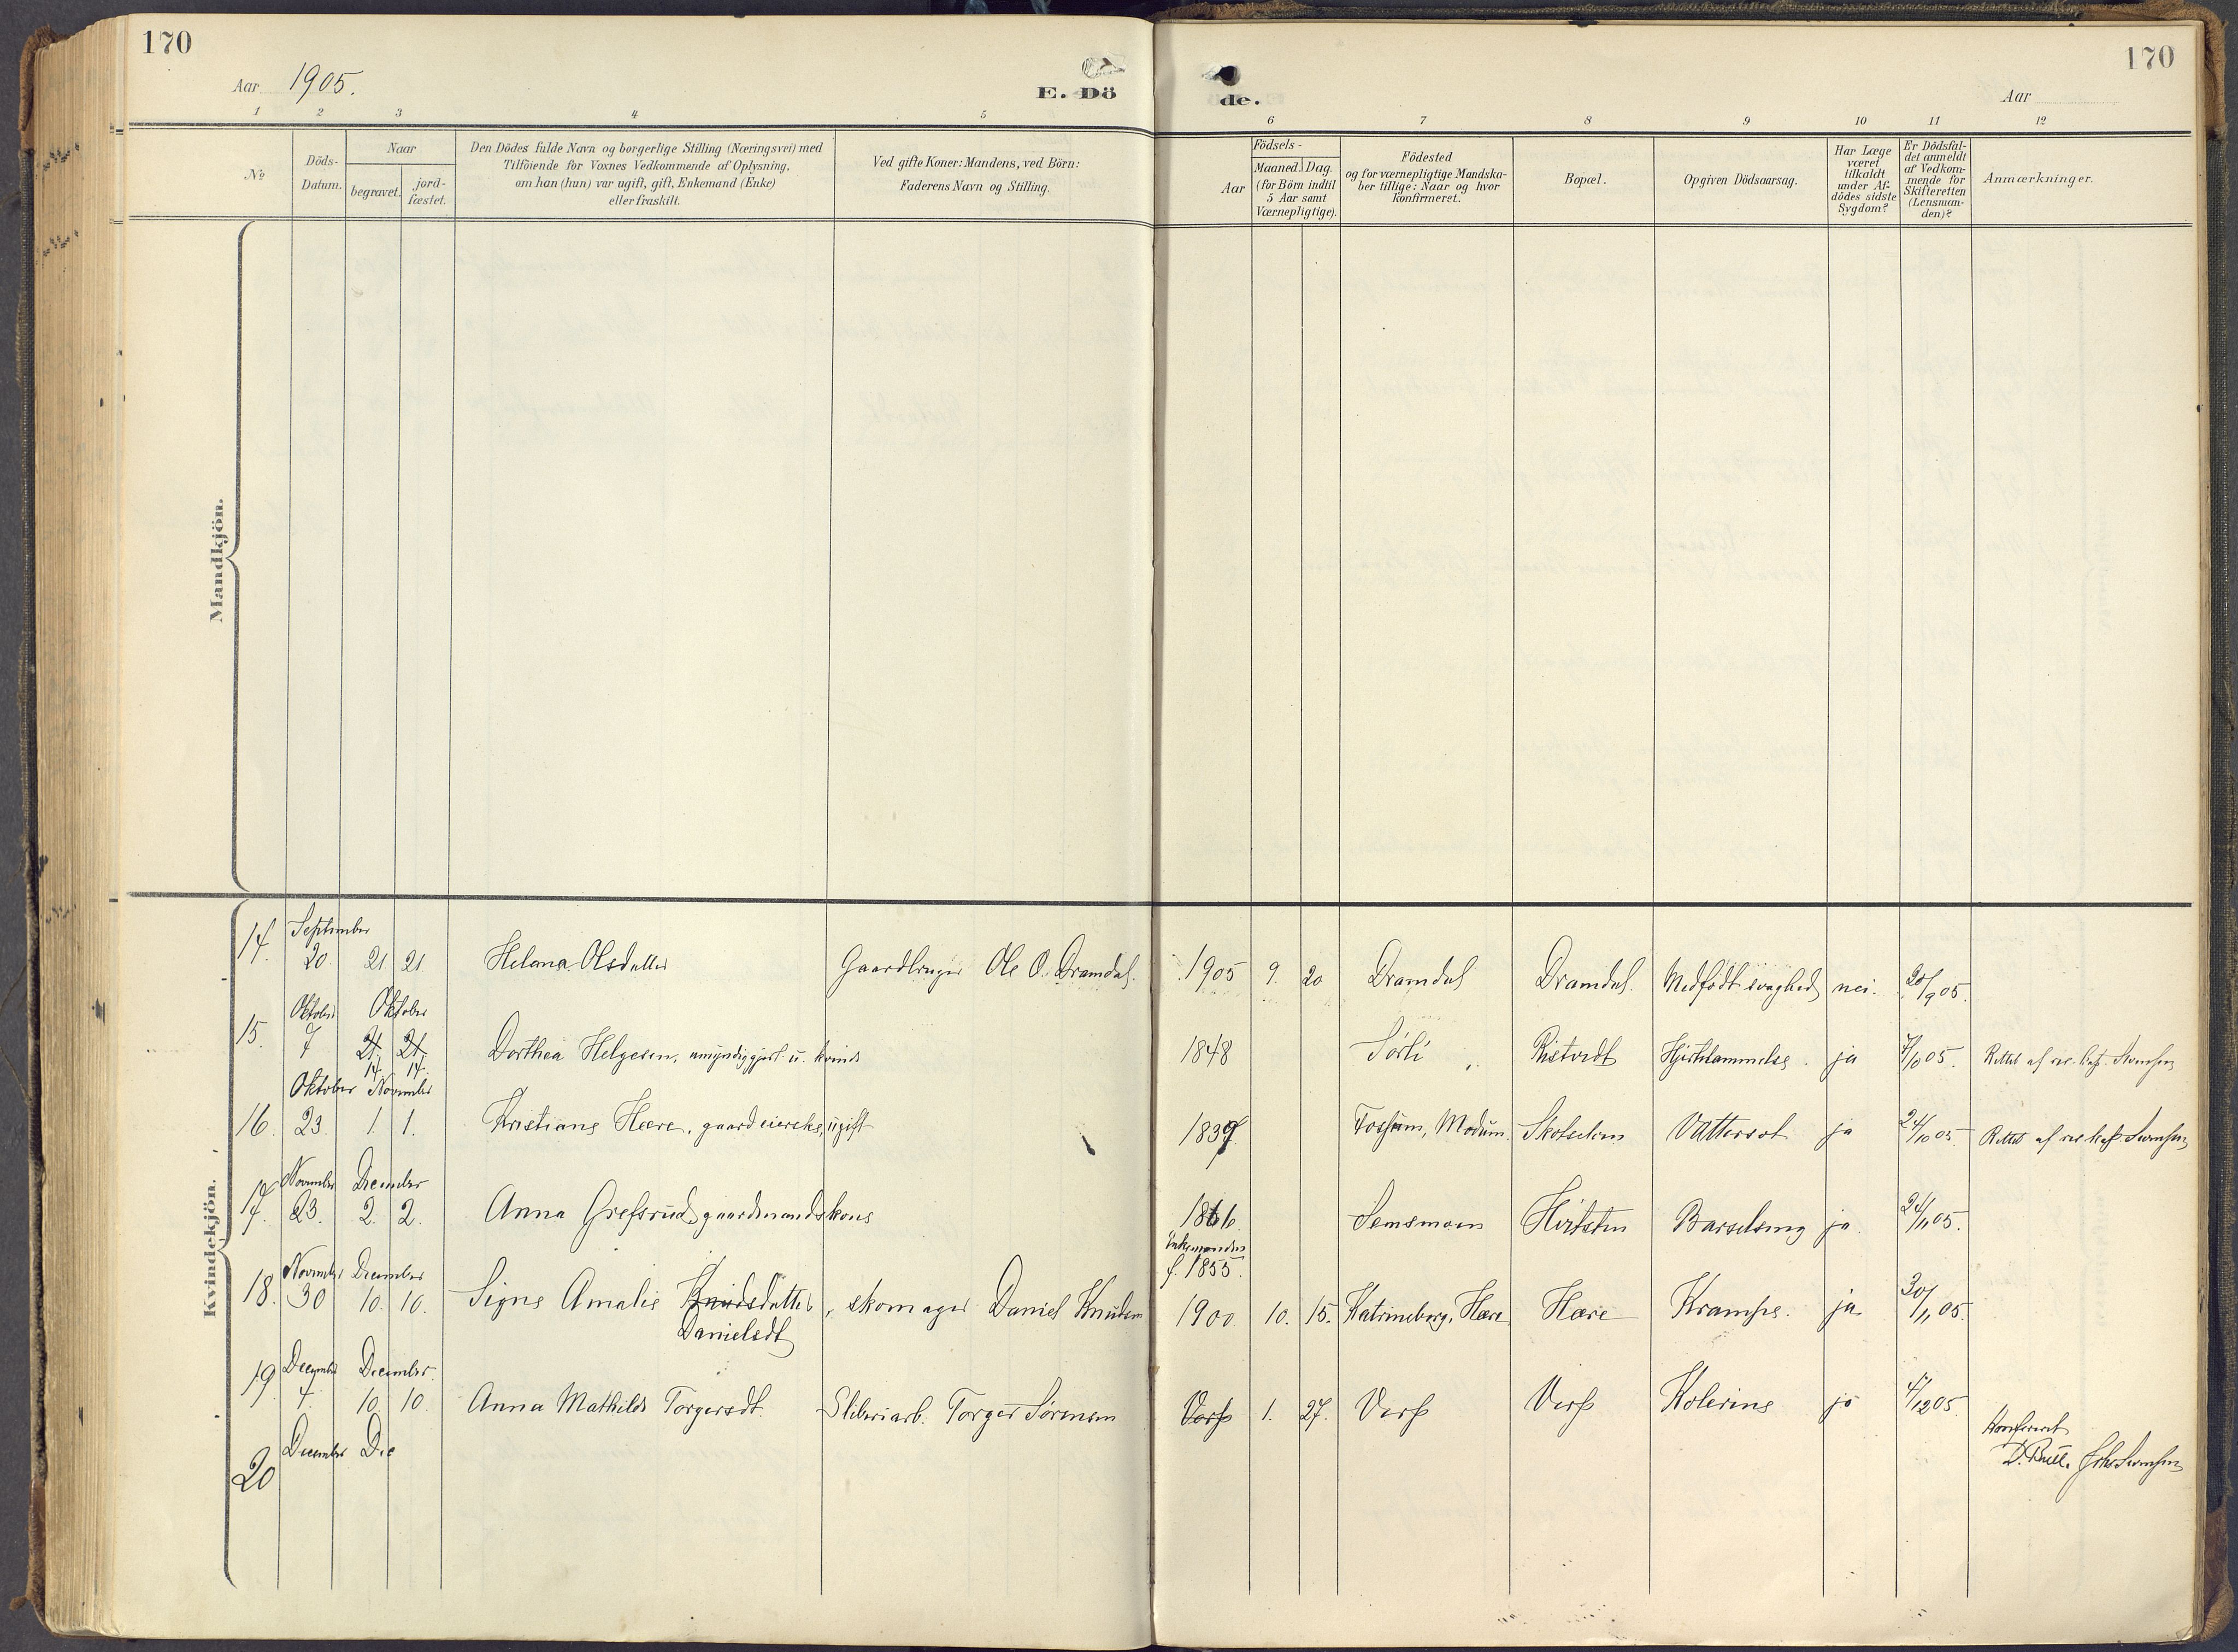 170
170
Aar 1905.
E. Dö
de.
Aar
1 2 3 4 5 6 7 8 9 10 11 12
No
Döds-
Datum.
Naar
begravet.
jord-
fæstet.
Den Dödes fulde Navn og borgerlige Stilling (Næringsvei) med
Tilföiende for Voxnes Vedkommende af Oplysning,
om han (hun) var ugift, gift, Enkemand (Enke)
eller fraskilt.
Ved gifte Koner: Mandens, ved Börn:
Faderens Navn og Stilling.
Aar
Födsels-
Maaned.
Dag.
(for Börn indtil
5 Aar samt
Værnepligtige).
Födested
og for værnepligtige Mandska-
ber tillige: Naar og hvor
konfirmeret.
Bopæl.
Opgiven Dödsaarsag.
Har Læge
været
tilkaldt
under Af-
dödes sidste
Sygdom?
Er Dödsfal-
det anmeldt
af Vedkom-
mende for
Skifteretten
(Lensman-
den)?
Anmærkninger.
Mandkjön.
Kvindekjön.
September
14. 20. 21 21. Helena Olsdatter Gaardbruger Ole O. Dramdal. 1905 9. 20 Dramdal Dramdal. Medfödt svaghed nei. 20/9 05.
Oktober Oktober
15. 7 21. 21. Dorthea Helgesen, umyndiggjort u. kvinde 1848 Sörli Ristvedt Hjertelammelse. ja 7/10 05. Rettet af res. kap. Svensen
14. 14.
Oktober November
16. 23. 1. 1. Kristiane Hære, gaardeierske, ugift 1839 Fossum, Modum. Skotselven Vattersot ja 24/10 05. Rettet af res. kap. Svensen
November December
17. 23. 2. 2. Anna Grefsrud, gaardmandskone 1866. Semsmoen Hvitsten Barselseng ja. 24/11 05.
Enkemanden
f. 1855.
November December
18. 30 10. 10. Signe Amalie Knudsdatter, skomager Daniel Knudsen 1900. 10. 15. Katrineberg, Hære Hære Krampe. ja 30/11 05.
Danielsdt
December December.
19. 4. 10. 10. Anna Mathilde Torgersdt. Sliberiarb. Torger Sörensen Vers 1. 27. Vers Vers Kolerine ja 4/12 05.
December De
20
Konfereret
D. Bull. Joh. Svensen